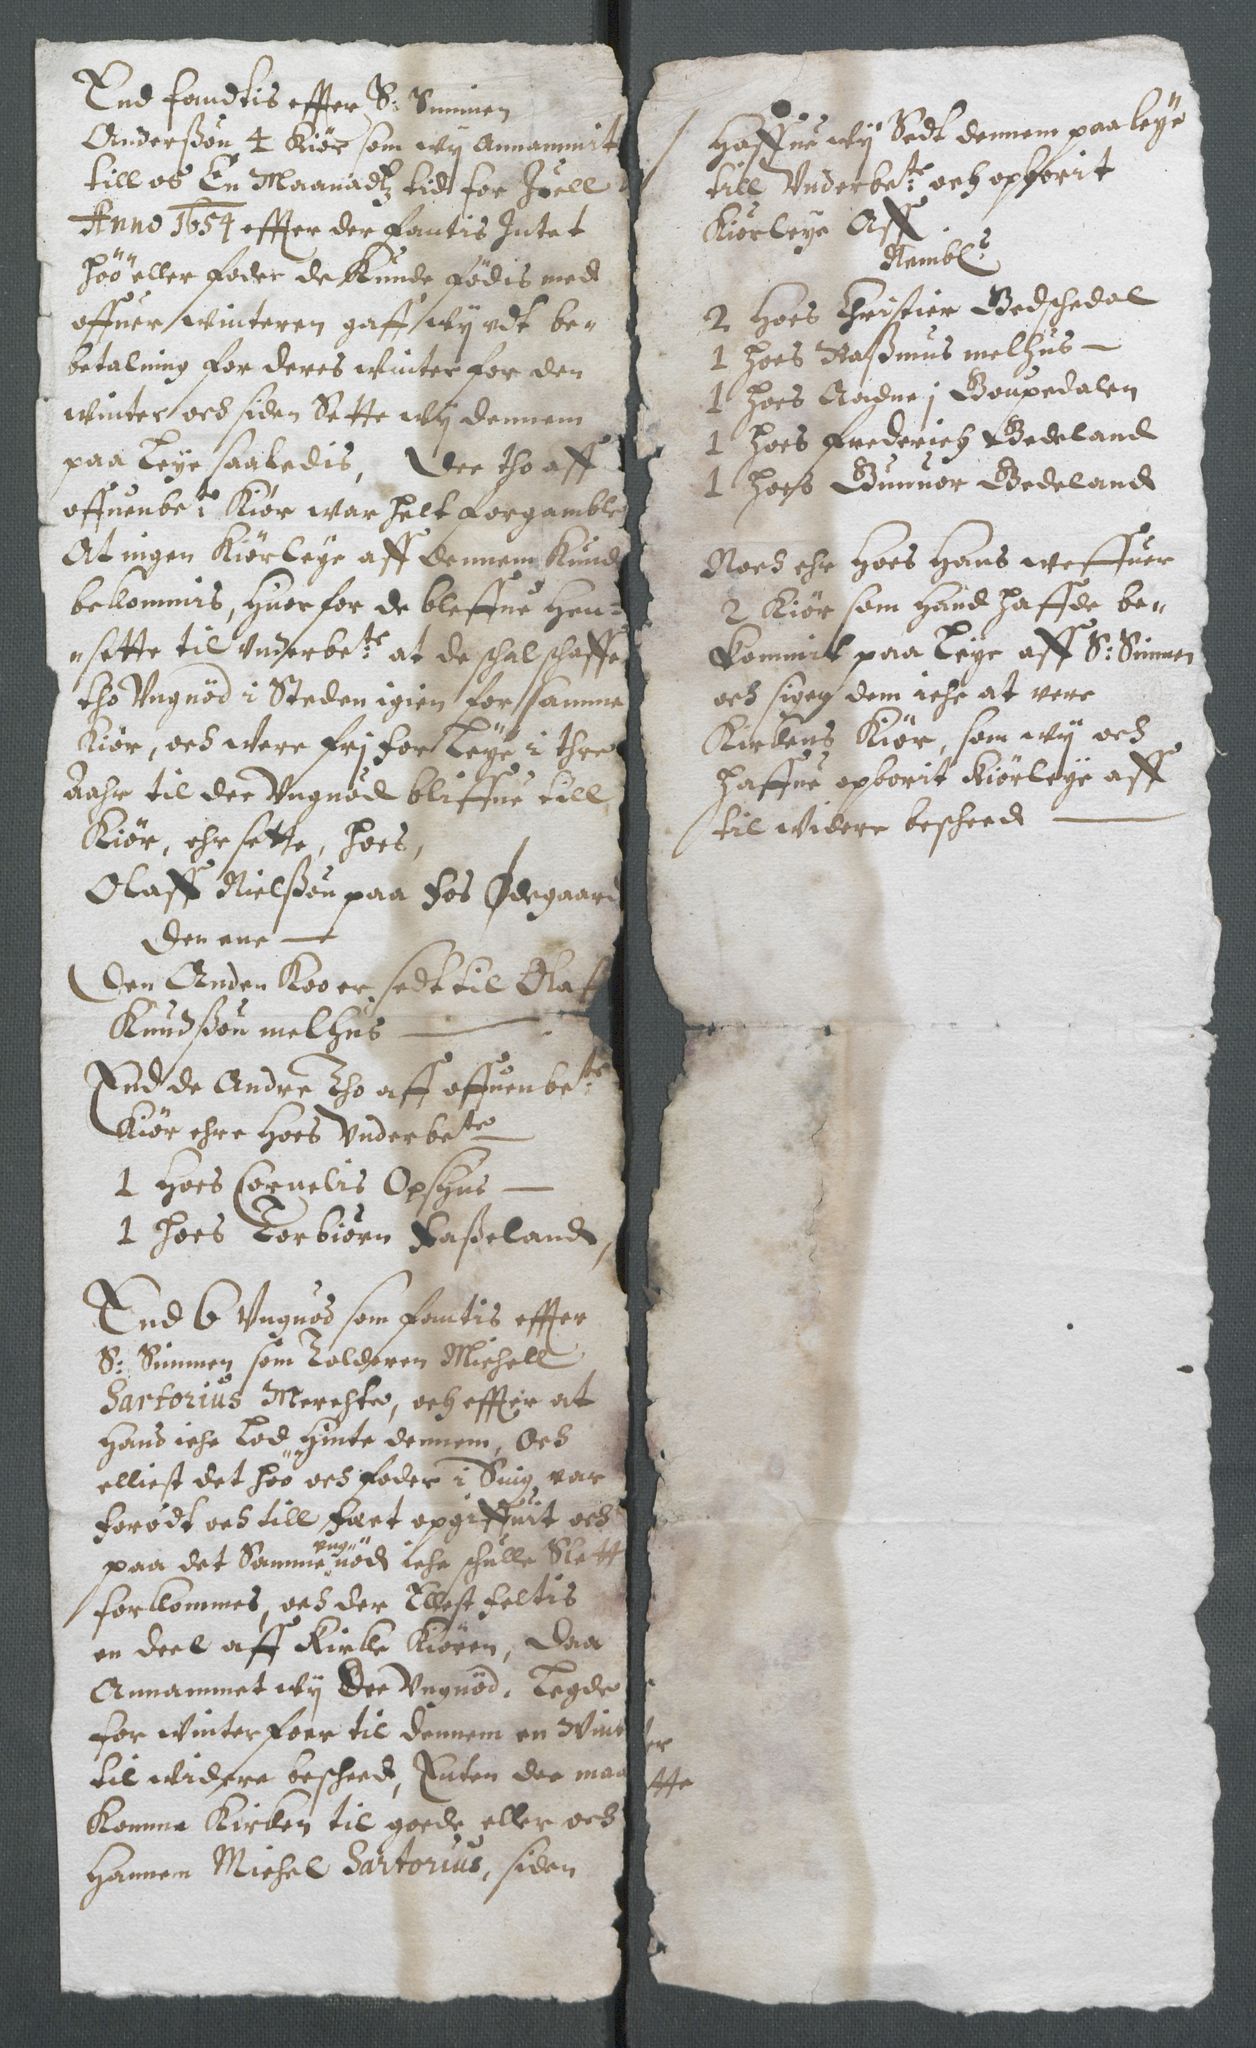 End fandtis effter S: Simmen
Anderßøn 4 Kiør som wij Annammit
till os En Maanadtz tid for Juell
Anno 1654 effter der fantis Intet
höö eller foder de Kunde födis med
offuer winteren gaff wij vdt be-
betalning for deres vinter for den
winter och siden Sette wij dennem
paa Leye saaledis, Dee tho aff
offuenbete Kiør war helt forgamble
At ingen Kiørleye aff dennem Kunde
bekommis, huorfor de bleffue hen-
sette til vnderbete at de schal schaffe
tho Vngnöd i Steden igien for samme
Kiør, och were frj for Leye i thre
Aahr til dee Vngnöd bliffue till
Kiør, ehr sette, hoes,
Olaff Nielßøn paa Fos Ødegaard
den ene —
Den Anden Koo er sedt til Olaff
Knudßøn melhus —
End de Andre Tho aff offuenbete
Kiør ehre hoes Vnderbete
1 Hoes Cornelis Opshus —
1 hoes Torbiørn Faßeland,
End 6 Vngnöd som fantis effter
S: Simmen som Tolderen Michell
Sartorius Merchte, och effter at
hans iche Lod hinte dennem, Och
elliest det höö och foder i Suig var
forödt och till fært opgiffuit och
paa det Samme vng nöd iche schulle Slett
forkommes, och der Ellest feltis
en deel aff Kirke Kiøren, Daa
Annammet wij Dee Vngnöd, Legde
for winter foer til dennem en Winter
til widere bescheed, Enten dee maatte
Komme Kirken til goede eller och
hannem Michel Sartorius, siden
Haffue wij Sedt dennem paa leye
till Vnderbete och opborit
Kiørleye Aff
Nembl:
2 Hoes Christier Bedschedal
1 hoes Raßmus melhus —
1 hoes Aagne j Goupedalen
1 hoes Frederich Bedeland
1 hoes Gunuor Bedeland
Noch ehr Hoes Hans weffuer
2 Kiør som hand haffde be-
kommit paa Leye aff S: Simmen
och siger dem iche at vere
Kirkens Kiør, som wij och
haffue opborit Kiørleye aff
til widere bescheed —